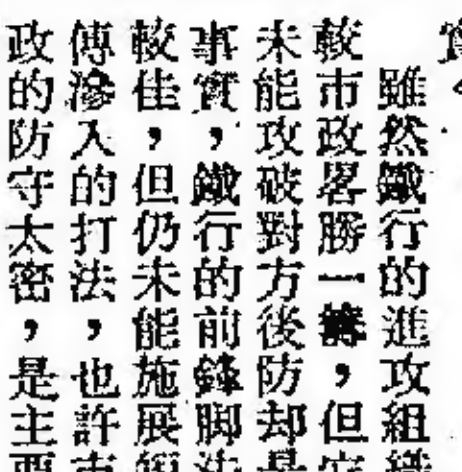 雖然鐵行的進攻組織
較市政畧勝一籌，但
未能攻破對方後防却是
事實，鐵行的前鋒脚法
較佳，但仍未能施展短
傳滲入的打法，也許市
政的防守太密，是主要